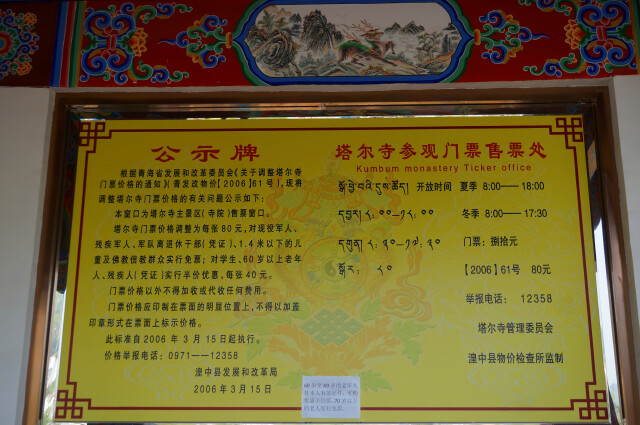 公示牌
根据青海省发展和改革委员会《关于调整塔尔寺
门票价格的通知》(青发改物价【2006】61号),现将
调整塔尔寺门票价格的有关问题公示如下:
本窗口为塔尔寺主景区(寺院)售票窗口。
塔尔寺门票价格调整为每张 80元,对现役军人、
残疾军人、军队离退休干部(凭证)、1.4米以下的儿
童及佛教信教群众实行免票;对学生、60岁以上老年
人、残疾人(凭证)实行半价优惠,每张 40元。
门票价格以外不得加收或代收任何费用。
门票价格应印制在票面的明显位置上,不得以加盖
印章形式在票面上标示价格。
此标准自2006 年 3月 15日起执行。
价格举报电话:0971——12358
湟中县发展和改革局
2006年3月15日
塔尔寺参观门票售票处
Kumbum monastery Ticker office
སྒོ་ཕྱེ་བའི་དུས་ཚོད། 开放时间 夏季 8:00——18:00
དབྱར། ༨:༠༠-༡༨:༠༠ 冬季 8:00——17:30
དགུན། ༨:༣༠-༡༧:༣༠ 门票:捌拾元
སྒོར: ༨༠ 【2006】61号 80元
举报电话: 12358
塔尔寺管理委员会
湟中县物价检查所监制